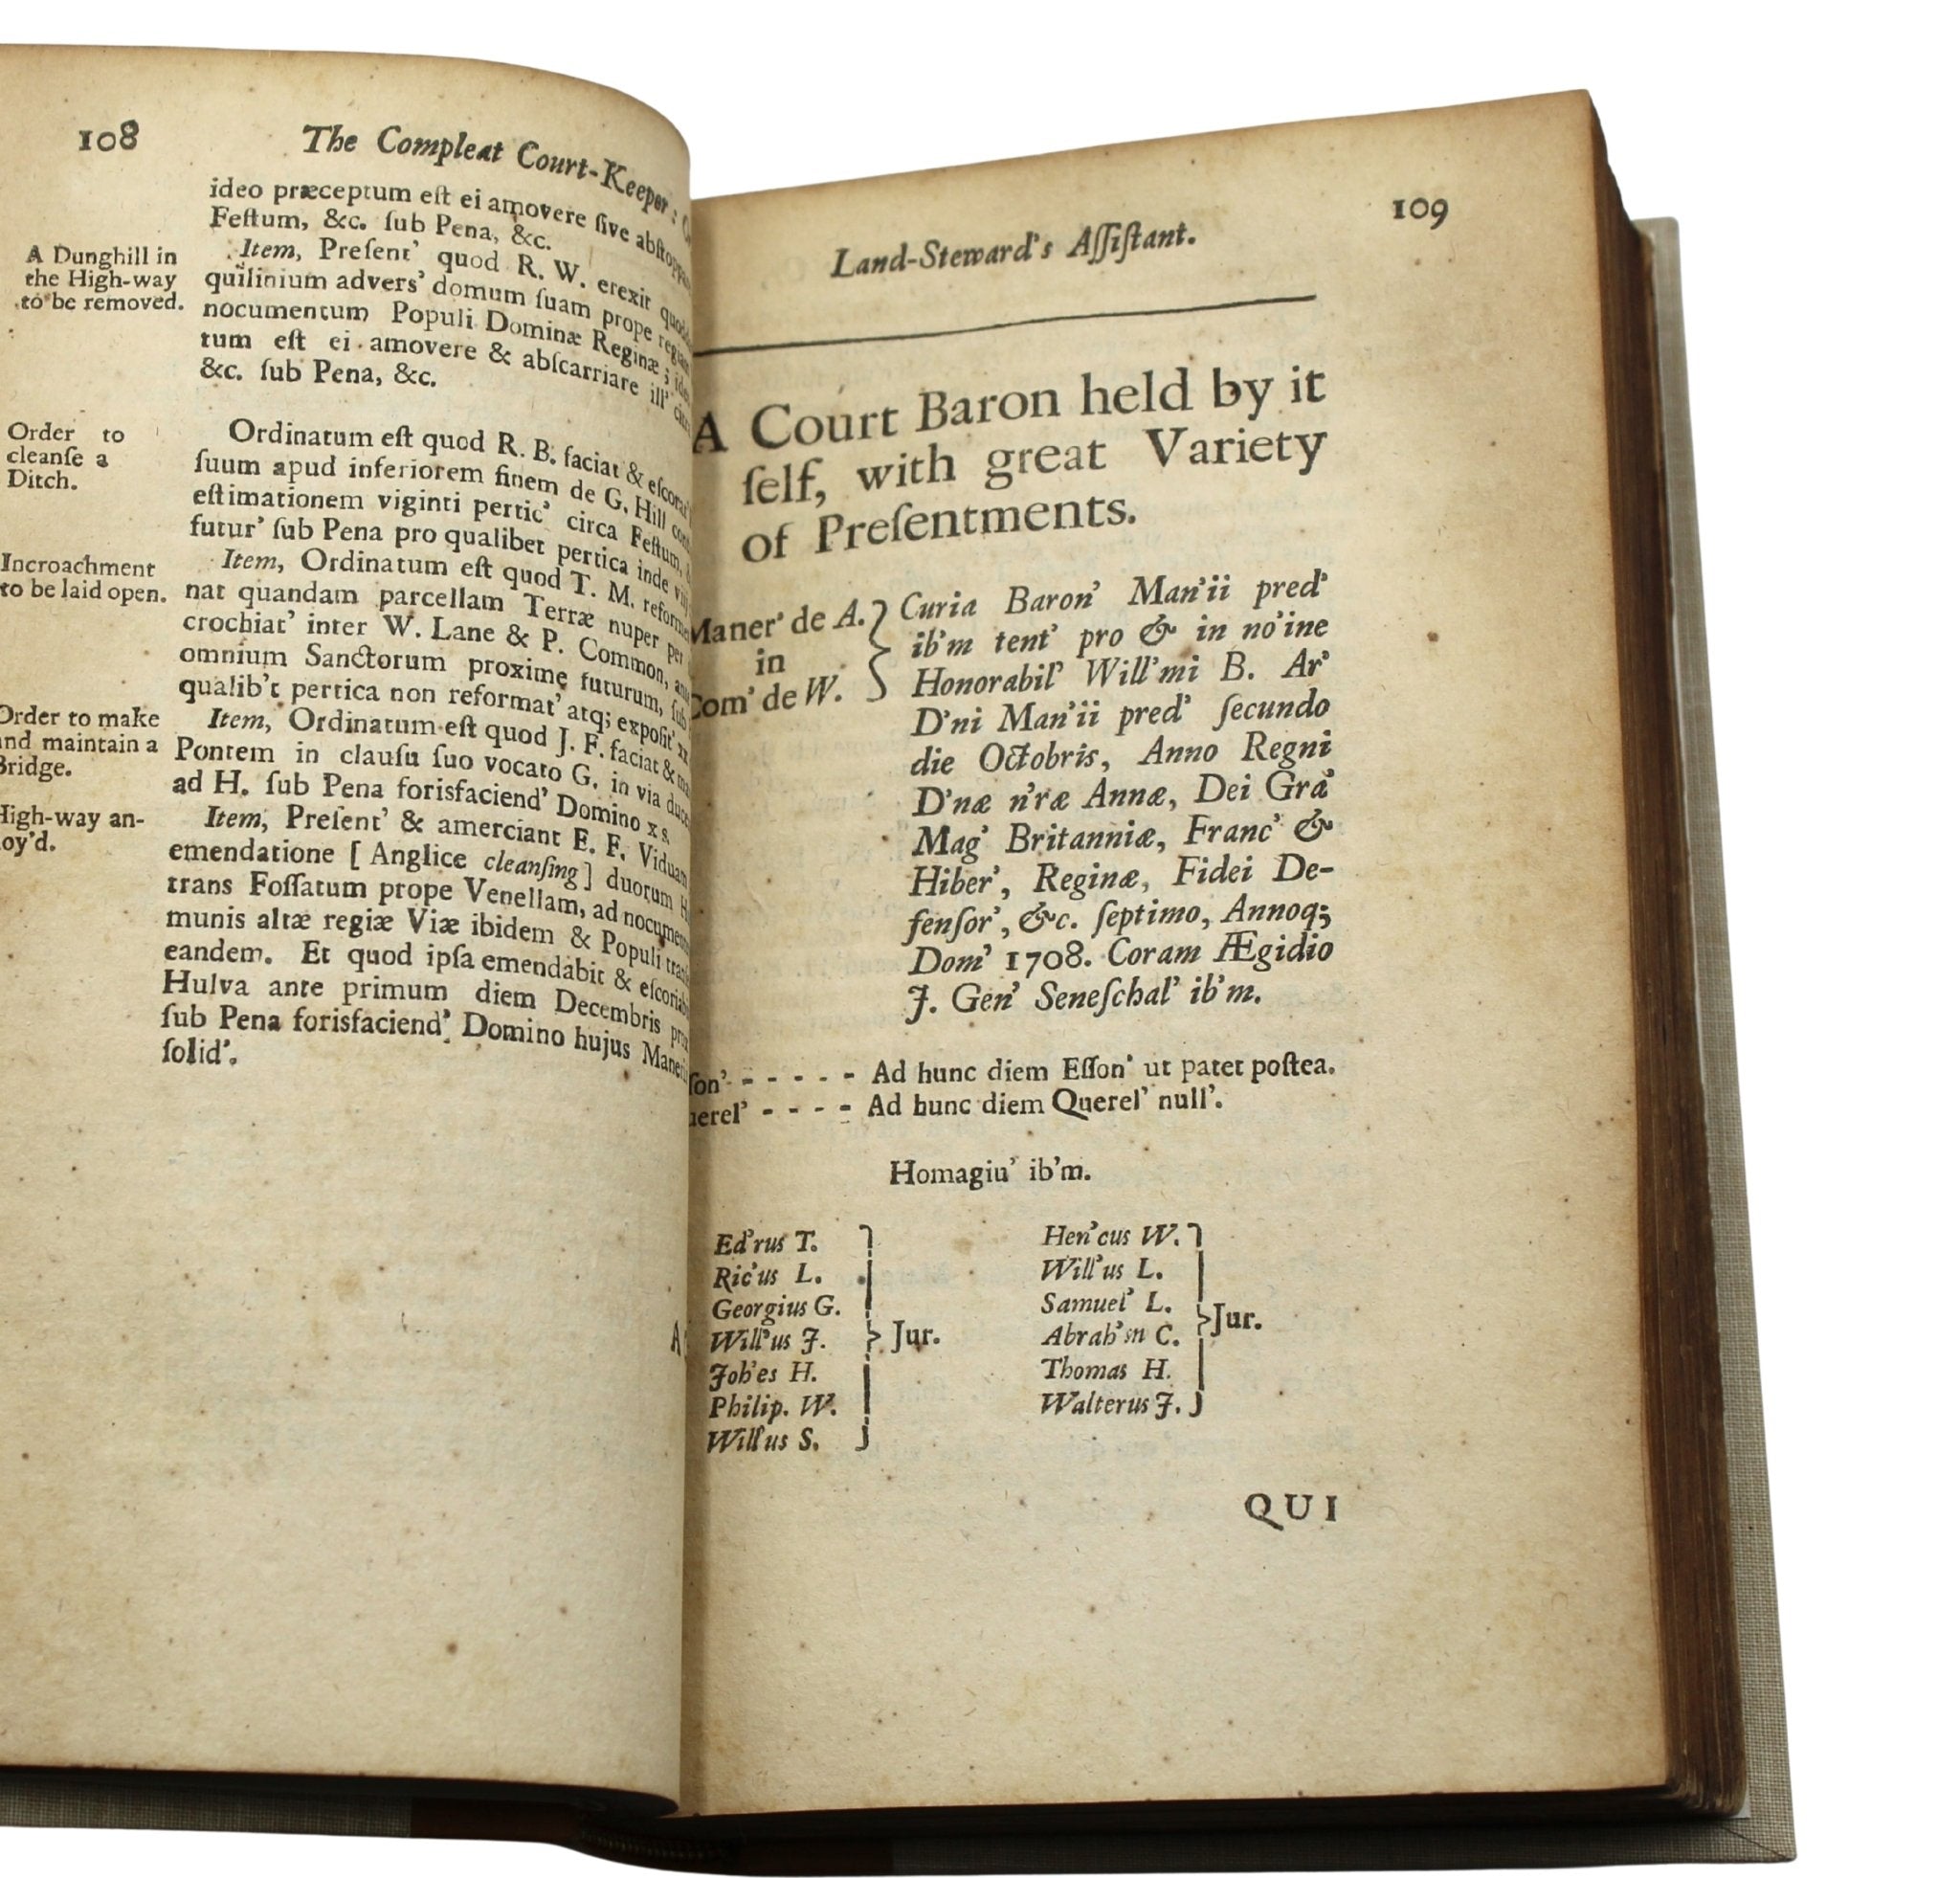 108
The Compleat Court-Keeper:
ideo præceptum eſt ei amovere ſive
Feſtum, &c. ſub Pena, &c.
A Dunghill in
the High-way
to be removed.
Item, Preſent’ quod R. W. erexit
quilinium advers’ domum ſuam prope
nocumentum Populi Dominæ Reginæ;
tum eſt ei amovere & abſcarriare ill’
&c. ſub Pena, &c.
Order to
cleanſe a
Ditch.
Ordinatum eſt quod R. B. faciat &
ſuum apud inferiorem finem de G. Hill
eſtimationem viginti pertic’ circa Feſtum,
futur’ ſub Pena pro qualibet pertica inde
Incroachment
to be laid open.
Item, Ordinatum eſt quod T. M.
nat quandam parcellam Terræ nuper per
crochiat’ inter W. Lane & P. Common,
omnium Sanctorum proxime futurum, ſub
qualib’t pertica non reformat’ atq; expoſit’
Order to make
and maintain a
Bridge.
Item, Ordinatum eſt quod J. F. faciat &
Pontem in clauſu ſuo vocato G. in via
ad H. ſub Pena forisfaciend’ Domino xs.
High-way an-
oy’d.
Item, Preſent’ & amerciant E. F. Viduam
emendatione [ Anglice cleanſing ] duorum
trans Foſſatum prope Venellam, ad
munis altæ regiæ Viæ ibidem & Populi
eandem. Et quod ipſa emendabit &
Hulva ante primum diem Decembris
ſub Pena forisfaciend’ Domino hujus
ſolid’.
109
Land-Steward’s Aſſiſtant.
A Court Baron held by it
ſelf, with great Variety
of Preſentments.
Maner’ de A.
in
Com’ de W.
Curia Baron’ Man’ii pred’
ib’m tent’ pro & in no’ine
Honorabil’ Will’mi B. Ar’
D’ni Man’ii pred’ ſecundo
die Octobris, Anno Regni
D’næ n’ræ Annæ, Dei Gra’
Mag’ Britanniæ, Franc’ &
Hiber’, Reginæ, Fidei De-
fenſor’, &c. ſeptimo, Annoq;
Dom’ 1708. Coram Ægidio
J. Gen’ Seneſchal’ ib’m.
ſon’ - - - - - Ad hunc diem Eſſon’ ut patet poſtea.
uerel’ - - - - Ad hunc diem Querel’ null’.
Homagiu’ ib’m.
Ed’rus T.
Ric’us L.
Georgius G.
Will’us J.
Joh’es H.
Philip. W.
Will’us S.
Jur.
Hen’cus W.
Will’us L.
Samuel’ L.
Abrah’m C.
Thomas H.
Walterus J.
Jur.
QUI